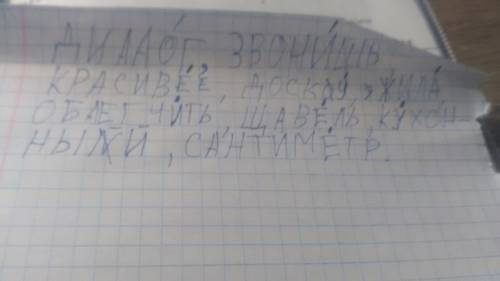 ДИАЛО́Г ЗВОНИ́ШЬ
КРАСИВЕ́Е, ДОСКУ́, ЖИЛА́
ОБЛЕГЧИ́ТЬ, ЩАВЕ́ЛЬ, КУ́ХОН-
НЫЙ, САНТИМЕ́ТР.